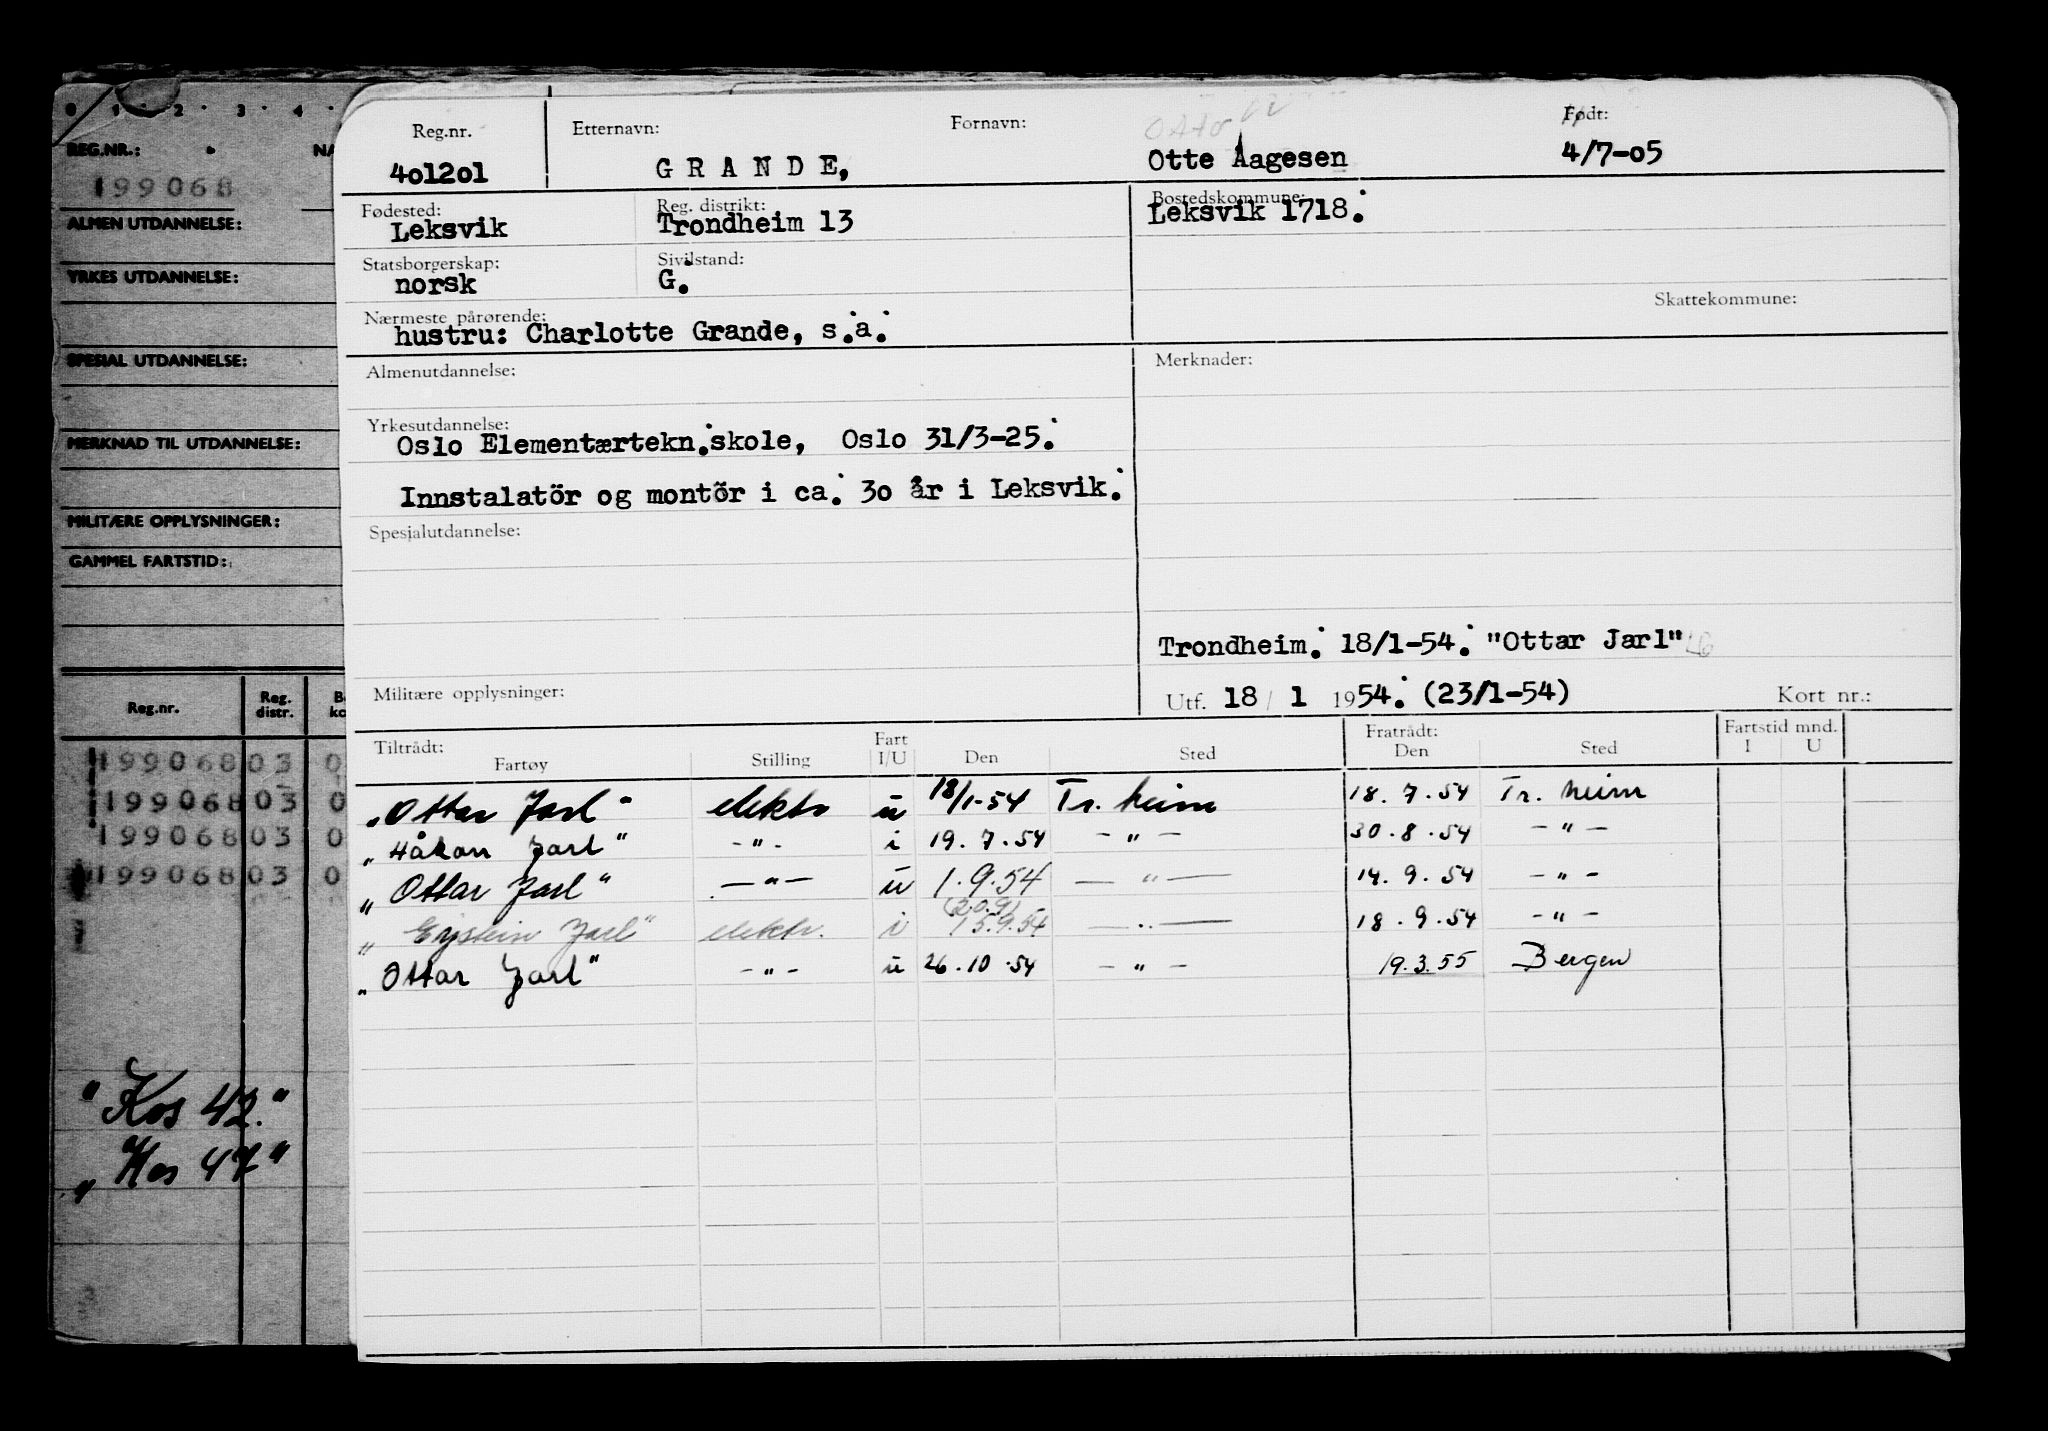 0 1 . 2 . 3 . 4 .
REG.NR.:
199068
ALMEN UTDANNELSE:
YRKES UTDANNELSE:
SPESIAL UTDANNELSE:
MERKNAD TIL UTDANNELSE:
MILITÆRE OPPLYSNINGER:
GAMMEL FARTSTID:
Reg.nr. Reg. distr.
199068 03 0
199068 03 0
199068 03 0
199068 03 0
"Kos 42."
Reg.nr. Etternavn: Fornavn: Født:
401201 GRANDE, Otte Aagesen 4/7-05
Fødested: Reg. distrikt: Bostedskommune:
Leksvik Trondheim 13 Leksvik 1718.
Statsborgerskap: Sivilstand:
norsk G.
Skattekommune:
Nærmeste pårørende:
hustru: Charlotte Grande, s.a.
Almenutdannelse: Merknader:
Yrkesutdannelse:
Oslo Elementærtekn.skole, Oslo 31/3-25.
Innstalatör og montör i ca. 30 år i Leksvik.
Spesialutdannelse:
Trondheim. 18/1-54. "Ottar Jarl"
Militære opplysninger: Utf. 18 / 1 1954. (23/1-54) Kort nr.:
Tiltrådt: Fart Fratrådt: Fartstid mnd.
Fartøy Stilling I/U Den Sted Den Sted I U
"Ottar Jarl" elektr u 18/1-54 Tr. heim 18.7.54 Tr. heim
"Håkon Jarl" -"- i 19.7.54 -"- 30.8.54 -"-
"Ottar Jarl" -"- u 1.9.54 -"- 14.9.54 -"-
(20.9)
"Eystein Jarl" elektr. i 15.9.54 -"- 18.9.54 -"-
"Ottar Jarl" -"- u 26.10.54 -"- 19.3.55 Bergen